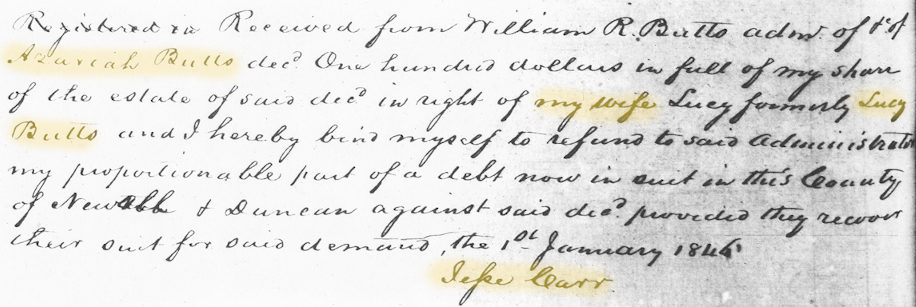 Registered in Received from William R. Butts admr. of &c of
Azariah Butts decd. One hundred dollars in full of my share
of the estate of said decd. in right of my wife Lucy formerly Lucy
Butts and I hereby bind myself to refund to said Administrator
my proportionable part of a debt now in suit in this County
of & Duncan against said decd. provided they recover
their suit for said demand, the 1st January
Jesse Carr